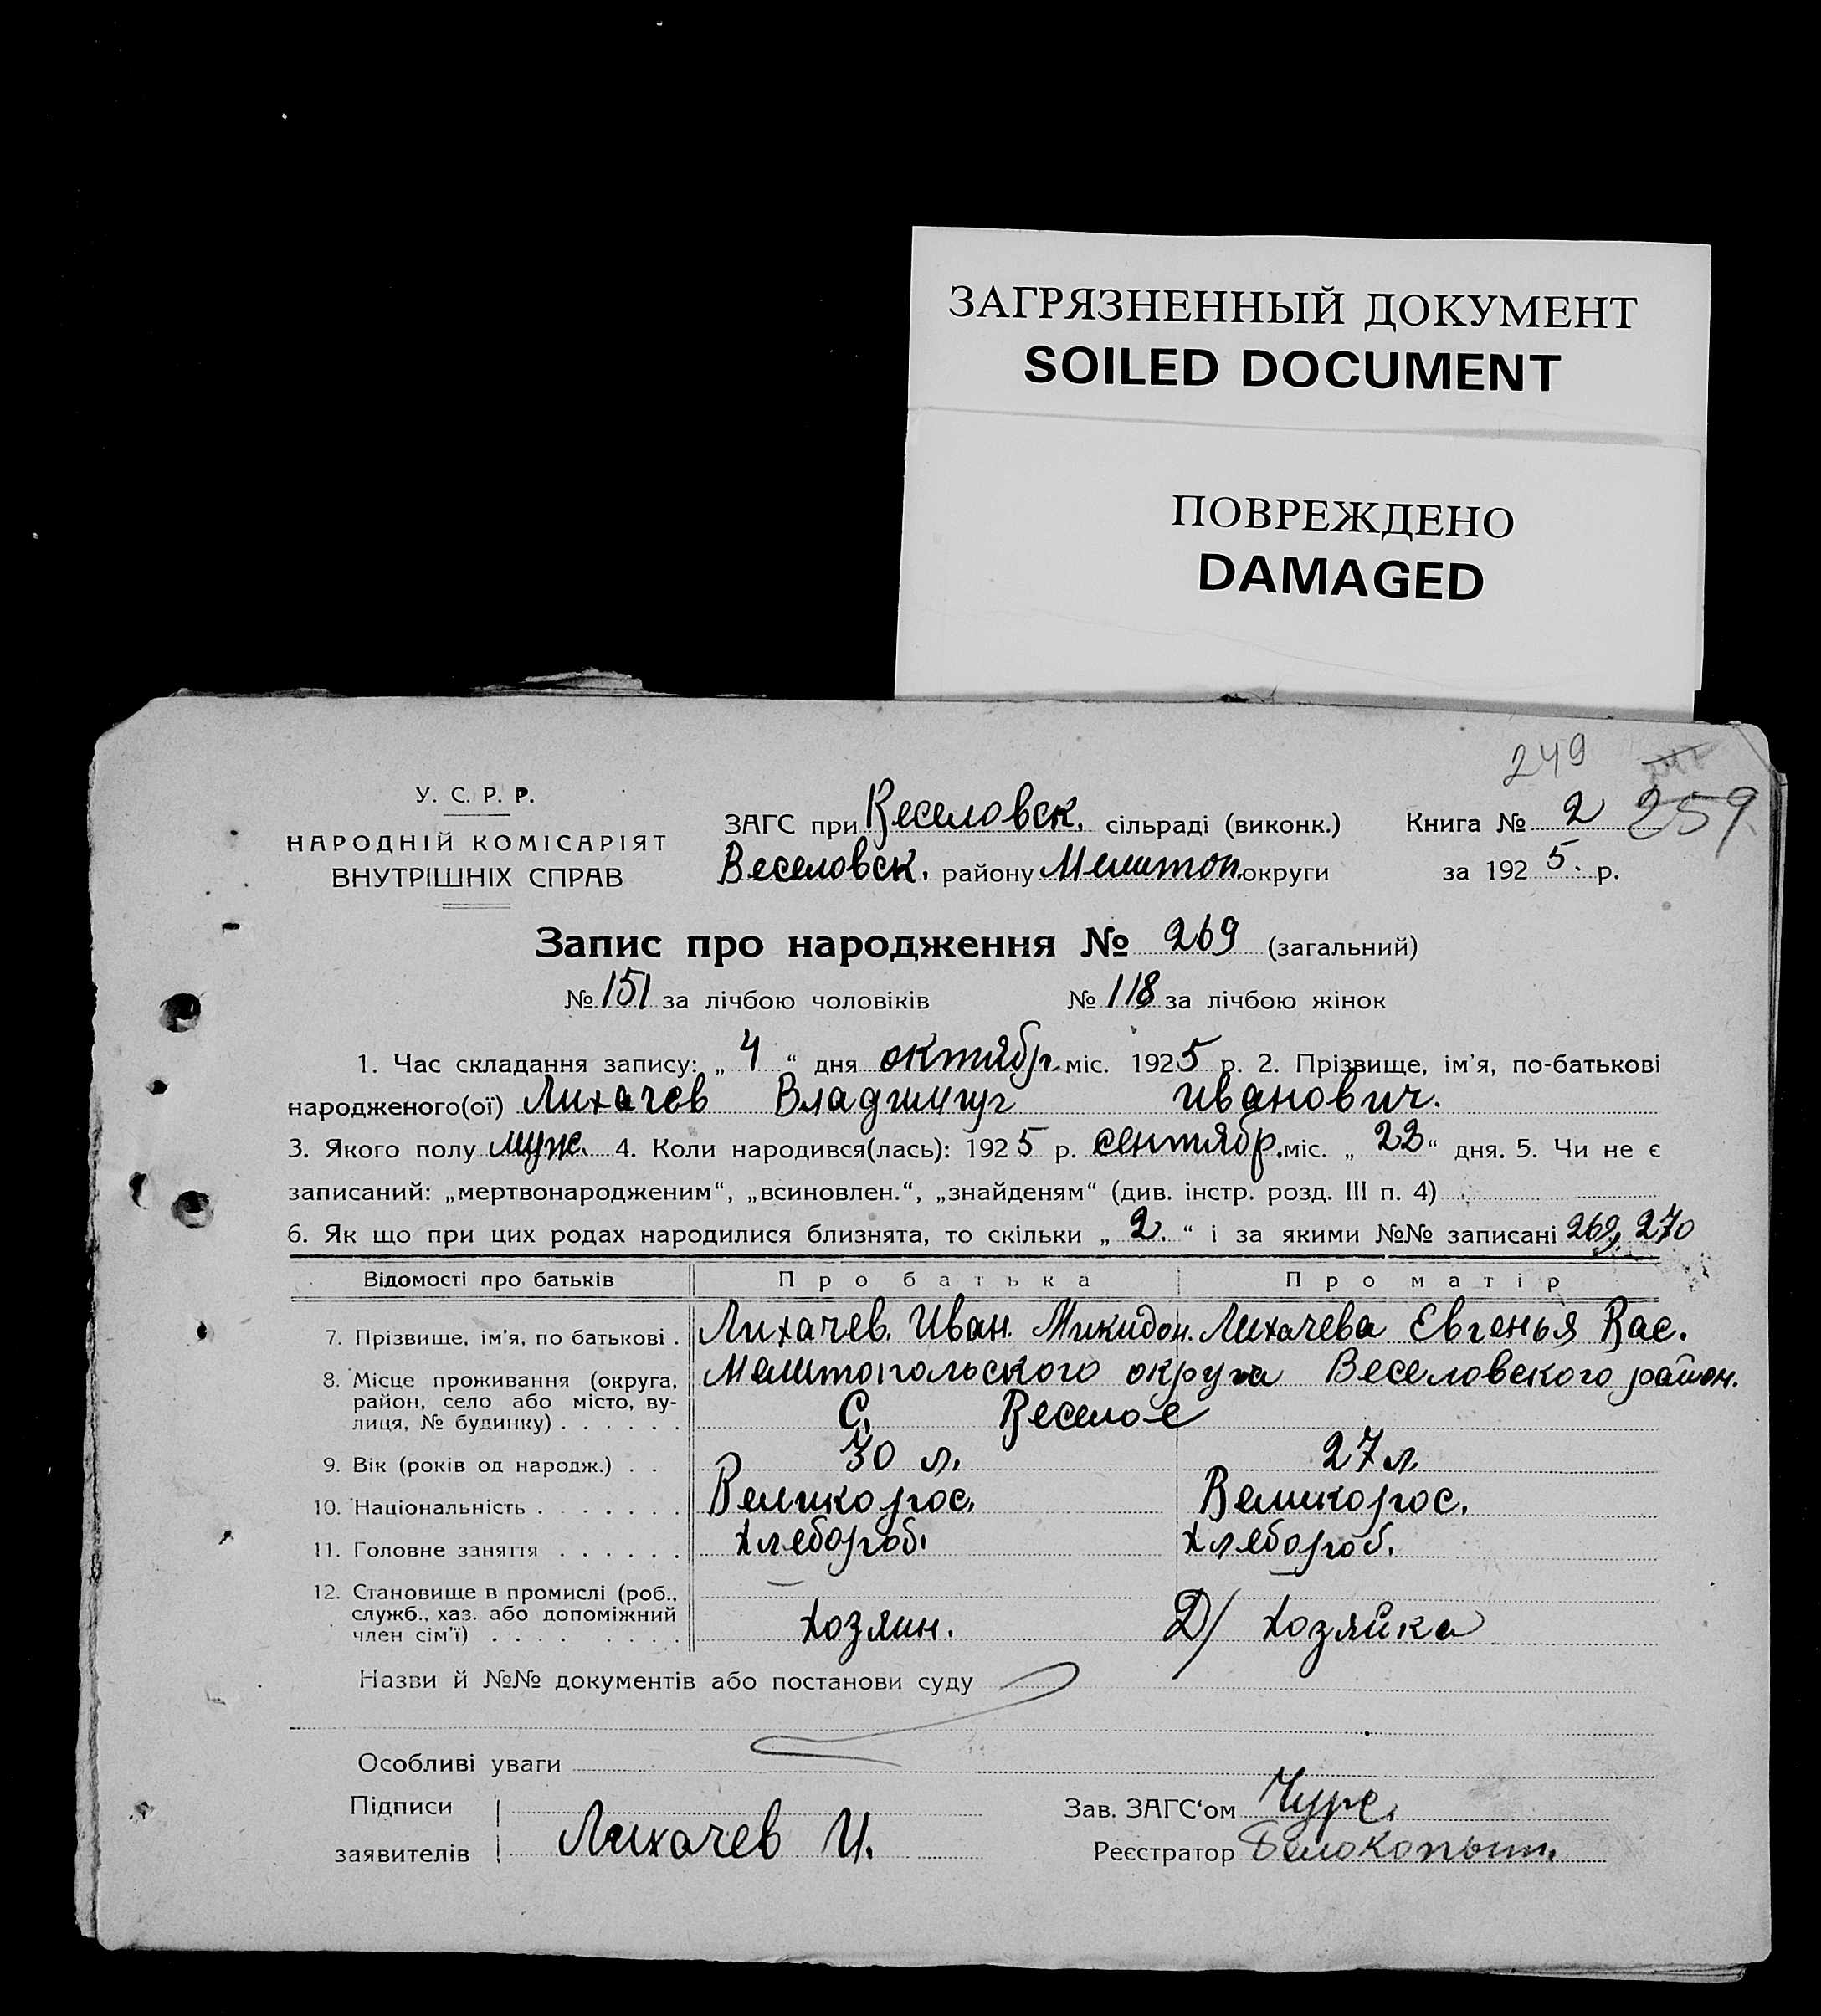 ЗАГРЯЗНЕННЫЙ ДОКУМЕНТ
SOILED DOCUMENT
ПОВРЕЖДЕНО
DAMAGED
249
У. С. Р. Р.
НАРОДНІЙ КОМІСАРІЯТ
ВНУТРІШНІХ СПРАВ
ЗАГС при Веселовск. сільраді (виконк.) Книга № 2 259
Веселовск. району Мелитоп. округи за 1925. р.
Запис про народження № 269 (загальний)
№ 151 за лічбою чоловіків № 118 за лічбою жінок
1. Час складання запису: „ 4 “ дня октябр. міс. 1925 р. 2. Прізвище, ім'я, по-батькові
народженого(ої) Лихачев Владимир Иванович.
3. Якого полу муж. 4. Коли народився(лась): 1925 р. сентябр. міс. „ 22 “ дня. 5. Чи не є
записаний: „мертвонародженим“, „всиновлен.“, „знайденям“ (див. інстр. розд. III п. 4)
6. Як що при цих родах народилися близнята, то скільки „ 2. “ і за якими №№ записані 269, 270
Відомості про батьків Про батька Про матір
7. Прізвище, ім'я, по батькові . Лихачев. Иван. Микидон. Лихачева Евгенья Вас.
8. Місце проживання (округа, Мелитопольского округа Веселовского район.
район, село або місто, ву-
лиця, № будинку) . . . . . . С. Веселое
9. Вік (років од народж.) . . 30 л. 27 л.
10. Національність . . . . . . . Великорос. Великорос.
11. Головне заняття . . . . . . Хлебороб. Хлебороб.
12. Становище в промислі (роб.,
служб., хаз. або допоміжний
член сім'ї) . . . . . . . . Хозяин. Д/ Хозяйка
Назви й №№ документів або постанови суду
Особливі уваги
Підписи
заявителів Лихачев И.
Зав. ЗАГС'ом Чурс.
Реєстратор Белокопыт.